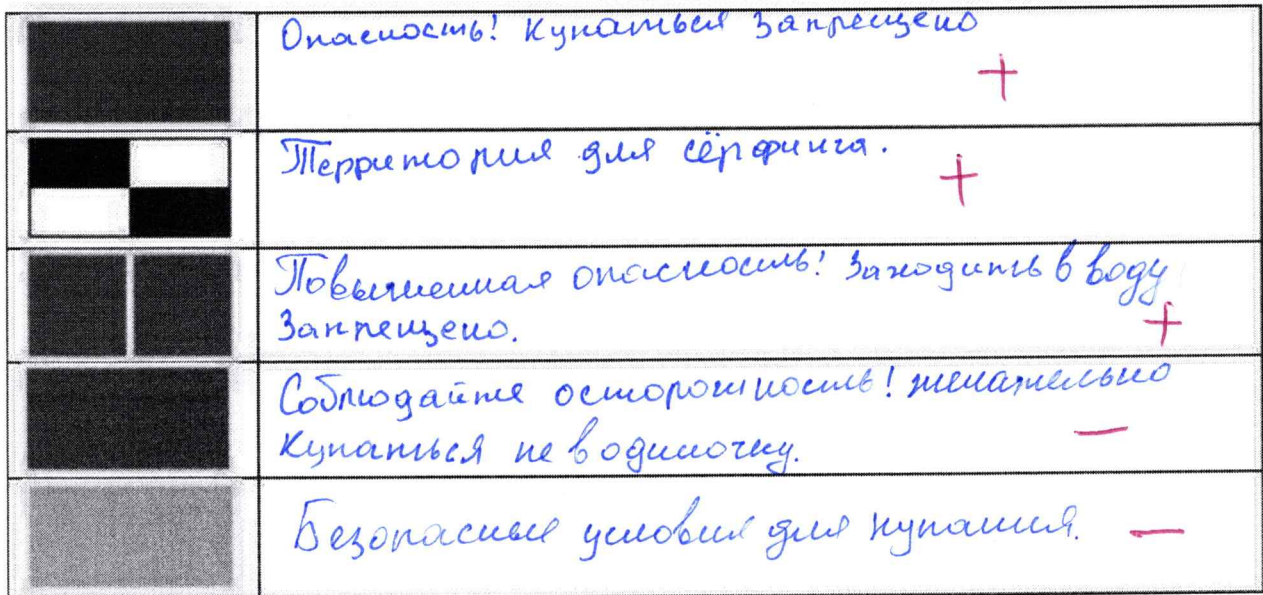 Опасность! Купаться Запрещено
+
Территория для сёрфинга.
+
Повышенная опасность! Заходить в воду
Запрещено.
+
Соблюдайте осторожность! желательно
Купаться не в одиночку.
—
Безопасные условия для купания.
—